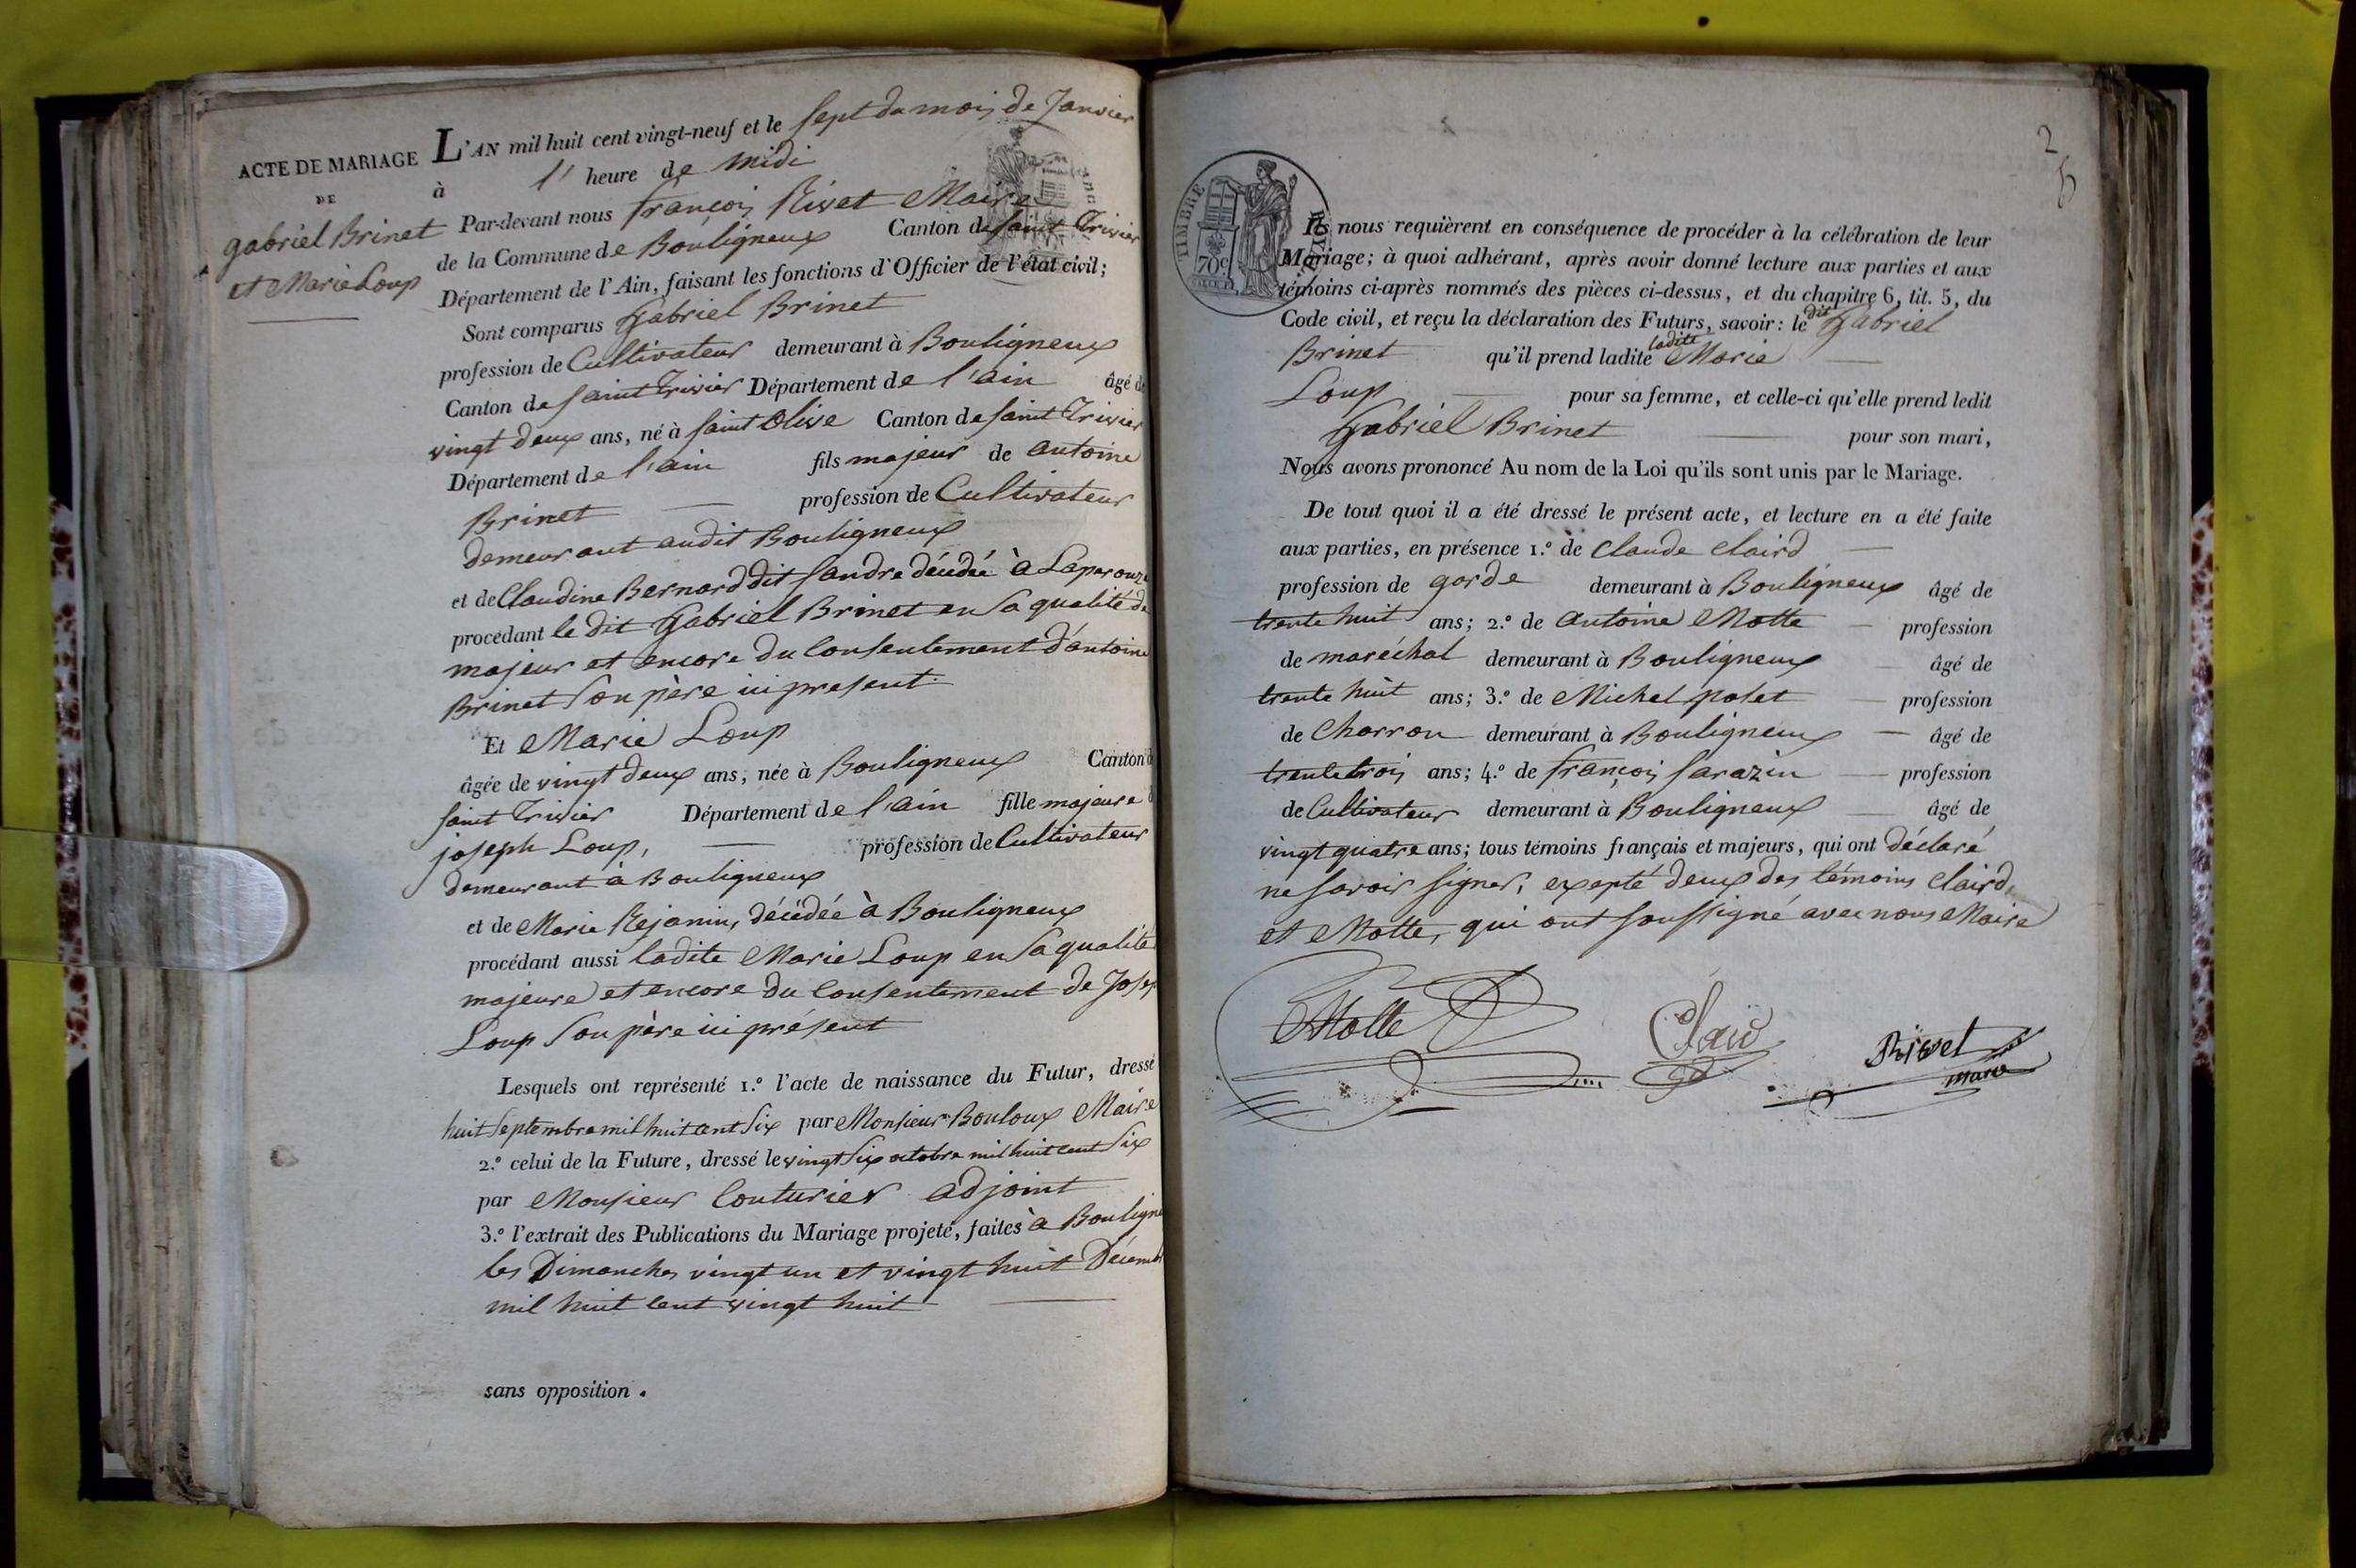 ACTE DE MARIAGE
DE
gabriel Brinet
et Marie Loup
L'AN mil huit cent vingt-neuf et le sept du mois de Janvier
à l' heure de midi
Par-devant nous françois Rivet Maire
de la Commune de Bouligneux Canton de saint Trivier
Département de l'Ain, faisant les fonctions d'Officier de l'état civil;
Sont comparus Gabriel Brinet
profession de Cultivateur demeurant à Bouligneux
Canton de saint Trivier Département de l'ain âgé de
vingt deux ans, né à saint Olive Canton de saint Trivier
Département de l'ain fils majeur de antoine
Brinet profession de Cultivateur
demeurant audit Bouligneux
et de Claudine Bernard dit Sandre décédée à Laperouze
procédant le dit Gabriel Brinet en sa qualité de
majeur et encore du Consentement d'antoine
Brinet son père ici present
Et Marie Loup
âgée de vingt deux ans, née à Bouligneux Canton d
saint Trivier Département de l'ain fille majeure d
joseph Loup, profession de Cultivateur
demeurant à Bouligneux
et de Marie Rejanin, décédée à Bouligneux
procédant aussi ladite Marie Loup en sa qualité
majeure et encore du Consentement de Josep
Loup son père ici présent
Lesquels ont représenté 1.º l'acte de naissance du Futur, dressé
huit septembre mil huit cent six par Monsieur Bouloux Maire
2.º celui de la Future, dressé le vingt six octobre mil huit cent six
par Monsieur Couturier adjoint
3.º l'extrait des Publications du Mariage projeté, faites à Bouligne
les Dimanches vingt un et vingt huit Décemb
mil huit cent vingt huit
sans opposition.
2
TIMBRE ROYAL
70c
Ils nous requièrent en conséquence de procéder à la célébration de leur
Mariage; à quoi adhérant, après avoir donné lecture aux parties et aux
témoins ci-après nommés des pièces ci-dessus, et du chapitre 6, tit. 5, du
Code civil, et reçu la déclaration des Futurs, savoir: le dit Gabriel
Brinet qu'il prend ladite ladite Marie
Loup pour sa femme, et celle-ci qu'elle prend ledit
Gabriel Brinet pour son mari,
Nous avons prononcé Au nom de la Loi qu'ils sont unis par le Mariage.
De tout quoi il a été dressé le présent acte, et lecture en a été faite
aux parties, en présence 1.º de Claude Claird
profession de garde demeurant à Bouligneux âgé de
trente huit ans; 2.º de antoine Motte profession
de maréchal demeurant à Bouligneux âgé de
trente huit ans; 3.º de Michel polet profession
de Charron demeurant à Bouligneux âgé de
trente trois ans; 4.º de françois sarazin profession
de Cultivateur demeurant à Bouligneux âgé de
vingt quatre ans; tous témoins français et majeurs, qui ont déclaré
ne savoir signer, expepté deux des témoins Claird,
et Motte, qui ont soussigné avec nous Maire
Motte Claid Rivet
maire